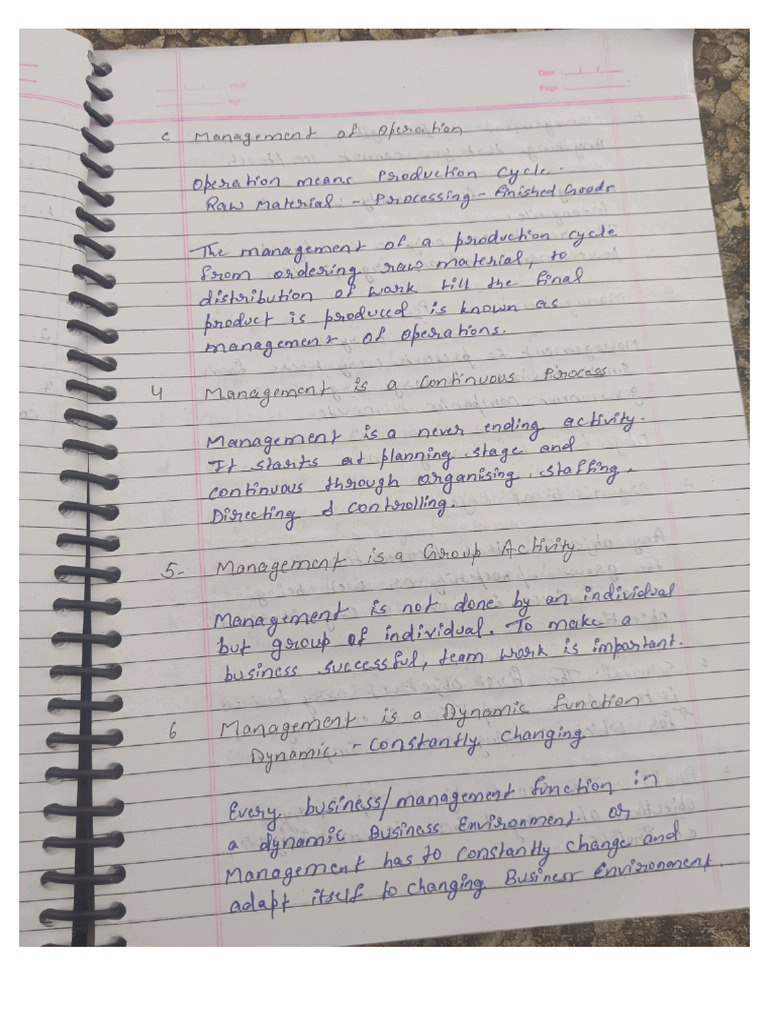 c Management of Operation
Operation means Production Cycle.
Raw Material - Processing - Finished Goods
The management of a production cycle
from ordering raw material, to
distribution of work till the final
product is produced is known as
management of operations.
4 Management is a Continuous Process
Management is a never ending activity.
It starts at planning stage and
continuous through organising, staffing,
Directing & controlling.
5- Management is a Group Activity
Management is not done by an individual
but group of individual. To make a
business successful, team work is important.
6 Management is a Dynamic function
Dynamic - constantly changing
Every business/management function in
a dynamic Business Environment or
Management has to constantly change and
adapt itself to changing Business Environment.